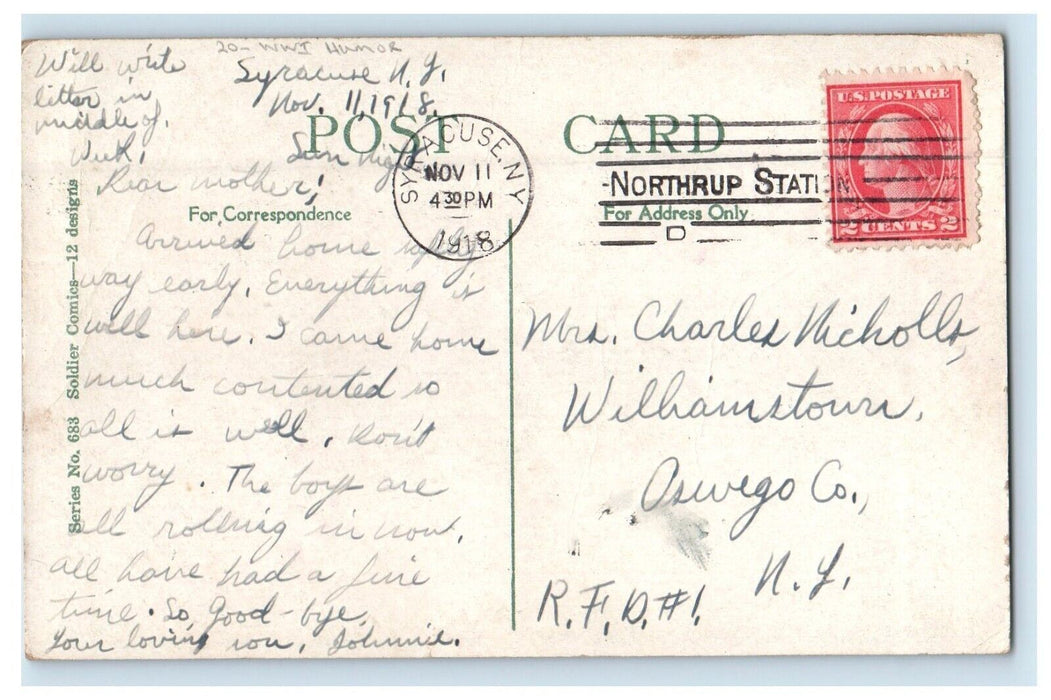 20- WWI HUMOR
Will write
letter in
middle of
Week.
Syracuse N.Y.
Nov. 11, 1918.
Sun Night
POST CARD
SYRACUSE, N.Y.
NOV 11
4 30 PM
1918
NORTHRUP STATION
D
U.S. POSTAGE
2 CENTS 2
For Correspondence
For Address Only
Series No. 683 Soldier Comics—12 designs
Dear mother;
Arrived home
way early. Everything is
well here. I came home
much contented so
all is well. Don't
worry. The boys are
all rolling in now.
All have had a fine
time. So Good-bye.
Your loving son, Johnnie.
Mrs. Charles Nicholls,
Williamstown,
Oswego Co.,
N.Y.
R.F.D.#1.